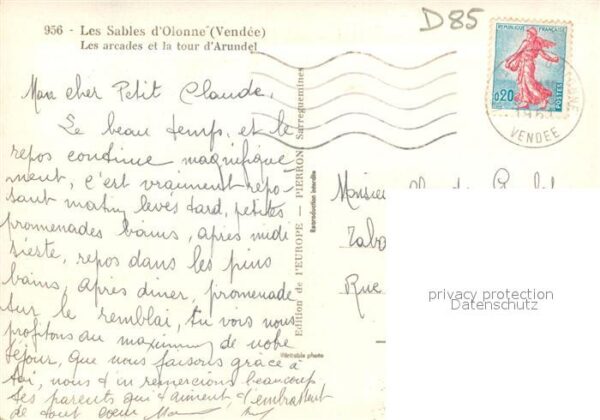 956 - Les Sables d'Olonne (Vendée)
Les arcades et la tour d'Arundel
D85
REPUBLIQUE FRANÇAISE
0,20
POSTES
VENDEE
Mon cher Petit Claude,
Le beau temps et le
repos continue magnifique
ment, c'est vraiment repo-
sant matin levés tard, petites
promenades bains, après midi
sieste, repos dans les pins
bains, après diner, promenade
sur le remblai, tu vois nous
profitons au maximum de notre
séjour, que nous faisons grâce à
toi, nous t'en remercions beaucoup
Tes parents qui t'aiment t'embrassent
de tout coeur
Edition de l'EUROPE — PIERRON, Sarreguemines
Reproduction interdite
Véritable photo
Monsieur
Rue
privacy protection
Datenschutz